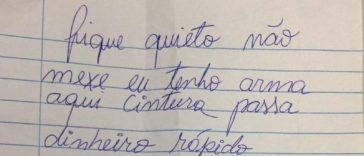 fique quieto não
mexe eu tenho arma
aqui cintura passa
dinheiro rápido